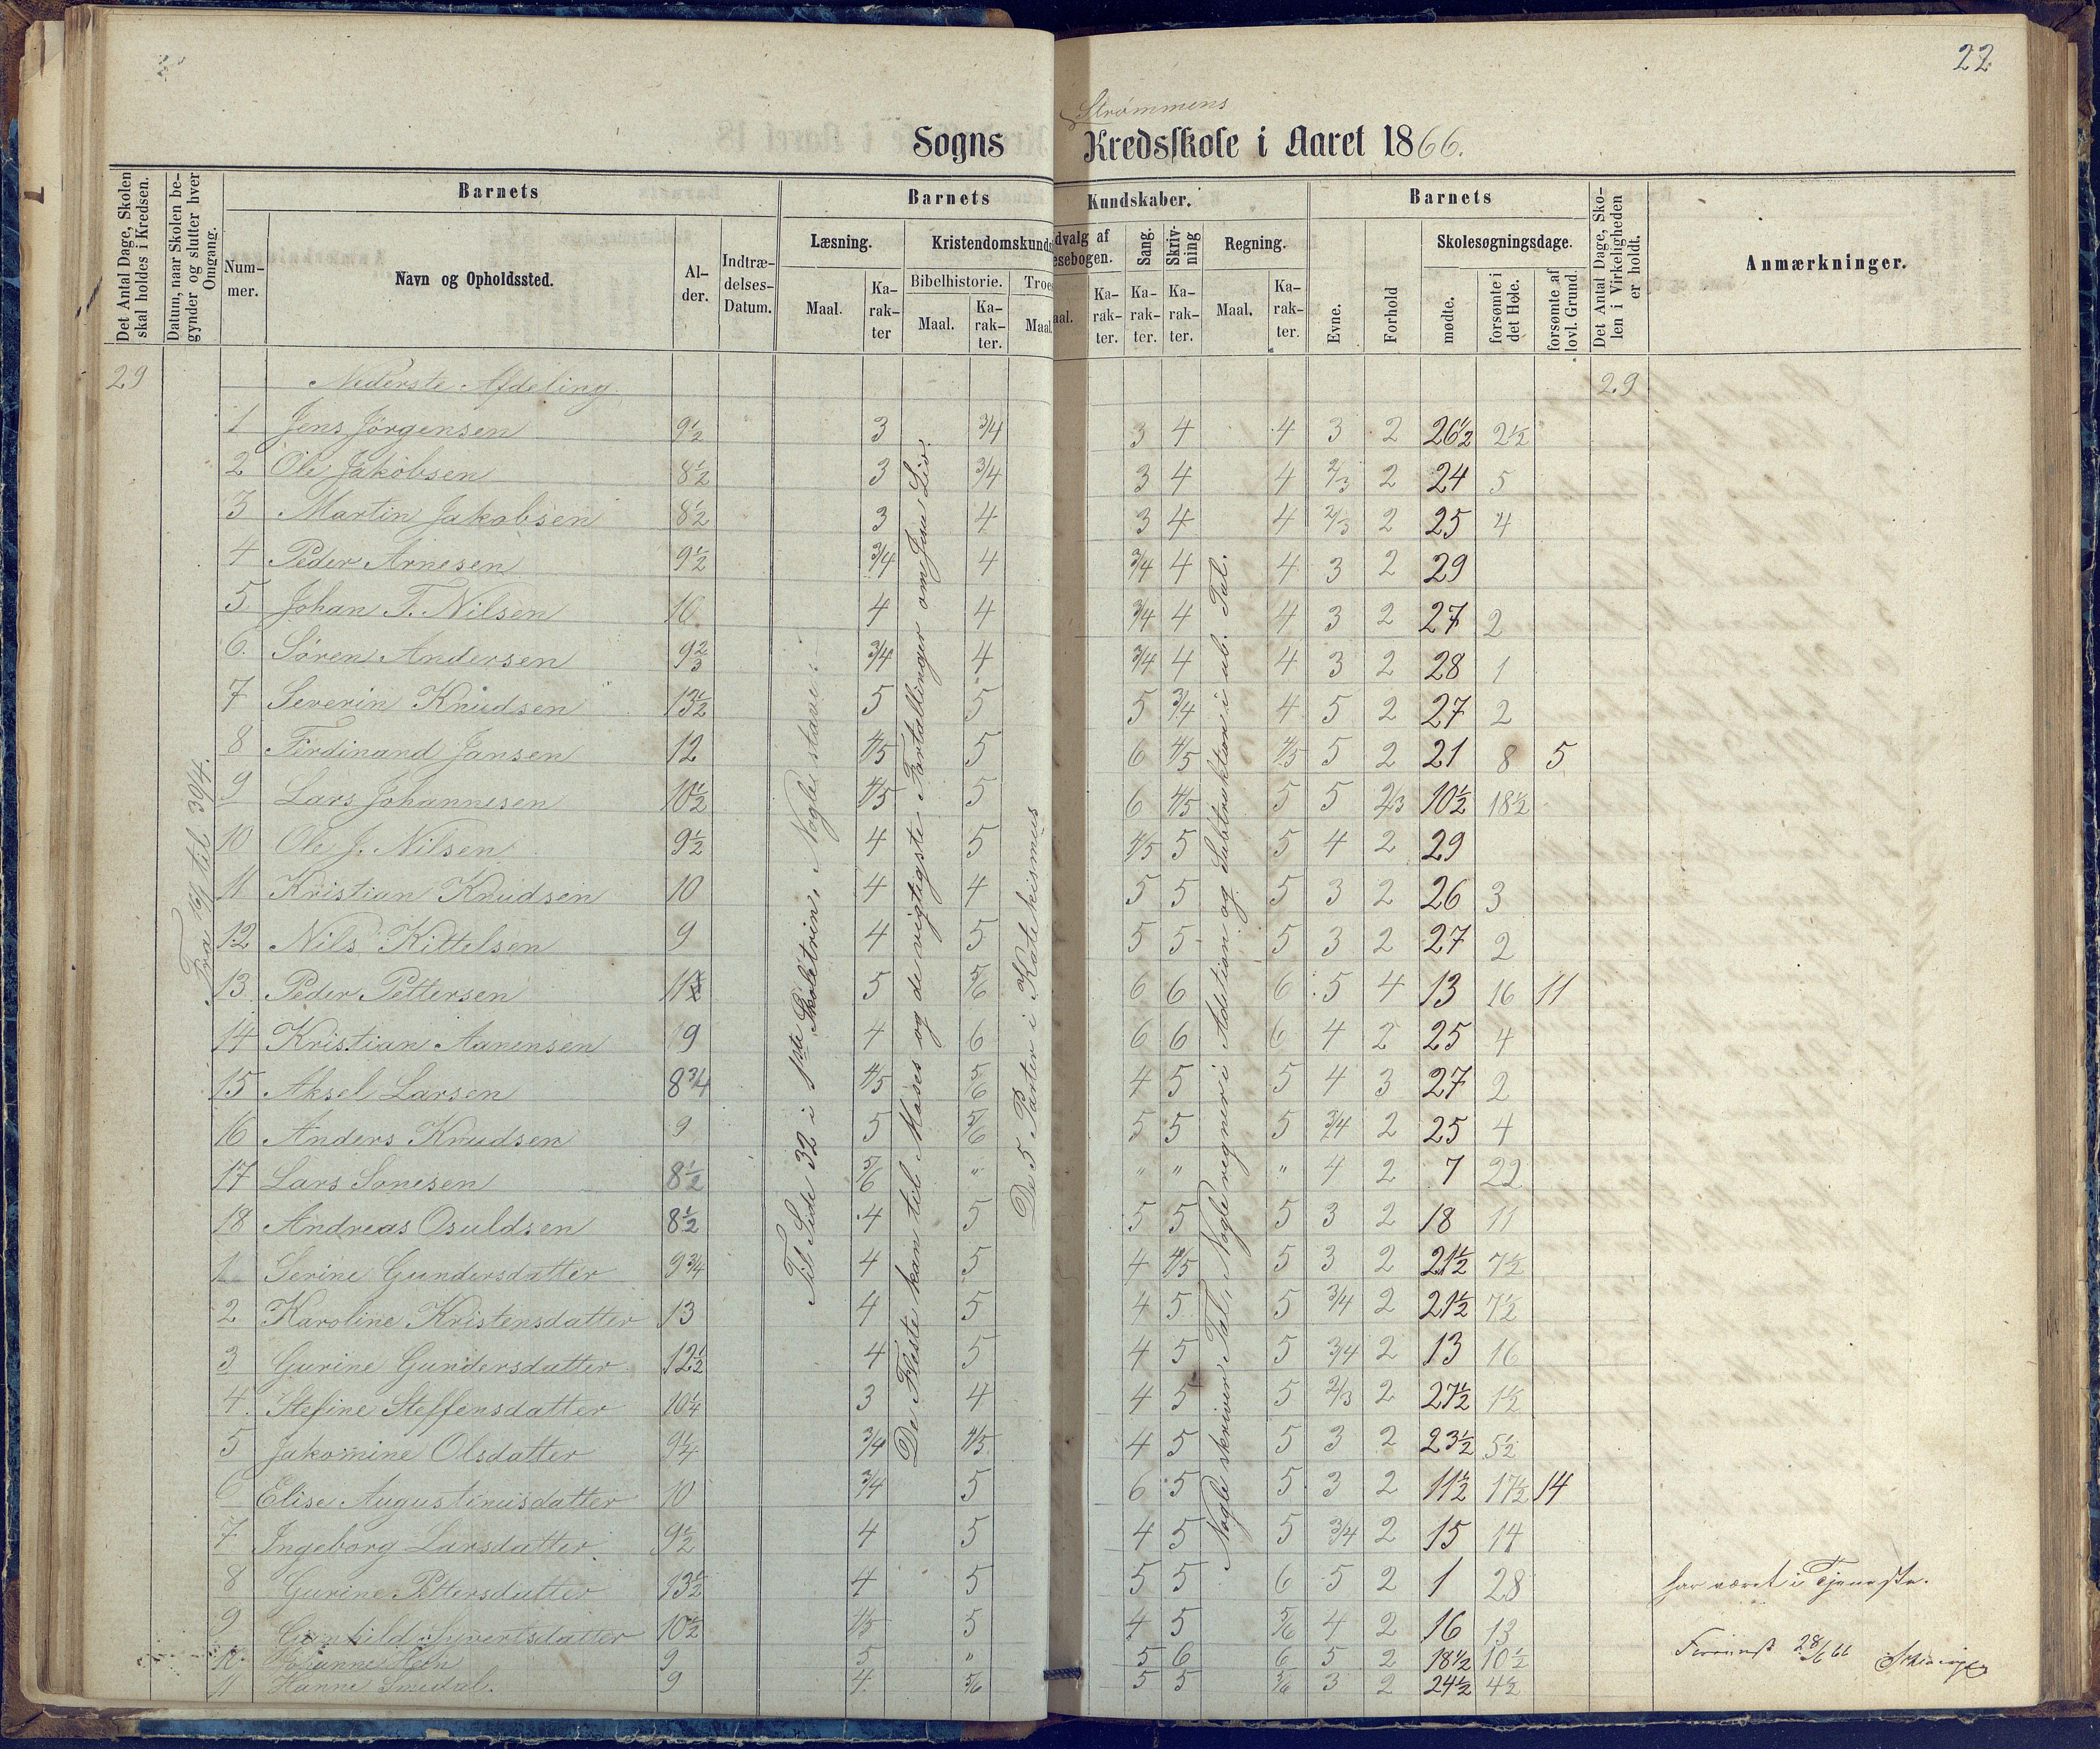 22
Strømmens
Sogns Kredsskole i Aaret 1866.
Det Antal Dage, Skolen skal holdes i Kredsen.
Datum, naar Skolen begynder og slutter hver Omgang.
Barnets
Nummer.
Navn og Opholdssted.
Alder.
Indtrædelses-Datum.
Barnets Kundskaber.
Læsning.
Maal.
Karakter
Kristendomskunds
Bibelhistorie.
Maal.
Karakter.
Troes
Maal.
dvalg af
esebogen.
aal.
Karakter.
Sang.
Karakter.
Skrivning
Karakter.
Regning.
Maal.
Karakter.
Barnets
Evne.
Forhold
Skolesøgningsdage.
mødte.
forsømte i det Hele.
forsømte af lovl. Grund.
Det Antal Dage, Skolen i Virkeligheden er holdt.
Anmærkninger.
29 Nederste Afdeling 29
Fra 16/1 til 30/4.
Til Side 32 i 1ste Skoletrin, Nogle stave.
De Fleste kan til Moses og de vigtigste Fortællinger om Jesu Liv.
De 5 Parter i Katekismus
Nogle skriver Tal, Nogle regner i Addition og Subtraktion i ub. Tal.
1 Jens Jørgensen 9½ 3 3/4 3 4 4 3 2 26½ 2½
2 Ole Jakobsen 8½ 3 3/4 3 4 4 2/3 2 24 5
3 Martin Jakobsen 8½ 3 4 3 4 4 2/3 2 25 4
4 Peder Arnesen 9½ 3/4 4 3/4 4 4 3 2 29
5 Johan T. Nilsen 10 4 4 3/4 4 4 3 2 27 2
6. Søren Andersen 9⅔ 3/4 4 3/4 4 4 3 2 28 1
7 Severin Knudsen 13½ 5 5 5 3/4 4 5 2 27 2
8 Ferdinand Jansen 12 4/5 5 6 4/5 4/5 5 2 21 8 5
9 Lars Johannesen 10½ 4/5 5 6 4/5 5 5 2/3 10½ 18½
10 Ole J. Nilsen 9½ 4 5 4/5 5 5 4 2 29
11 Kristian Knudsen 10 4 4 5 5 5 3 2 26 3
12 Nils Kittelsen 9 4 5 5 5 5 3 2 27 2
13 Peder Pettersen 11 5 5/6 6 6 6 5 4 13 16 11
14 Kristian Aanensen 9 4 6 6 6 6 4 2 25 4
15 Aksel Larsen 8¾ 4/5 5/6 4 5 5 4 3 27 2
16 Anders Knudsen 9 5 5/6 5 5 5 3/4 2 25 4
17 Lars Sonesen 8½ 5/6 " " " " 4 2 7 22
18 Andreas Osuldsen 8½ 4 5 5 5 5 3 2 18 11
1 Serine Gundersdatter 9¾ 4 5 4 4/5 5 3 2 21½ 7½
2 Karoline Kristensdatter 13 4 5 4 5 5 3/4 2 21½ 7½
3 Gurine Gundersdatter 12½ 4 5 4 5 5 3/4 2 13 16
4. Stefine Steffensdatter 10¼ 3 4 4 5 5 2/3 2 27½ 1½
5 Jakomine Olsdatter 9¼ 3/4 4/5 4 5 5 3 2 23½ 5½
6 Elise Augustinusdatter 10 3/4 5 6 5 5 3 2 11½ 17½ 14
7 Ingeborg Larsdatter 9½ 4 5 4 5 5 3/4 2 15 14
8 Gurine Pettersdatter 13½ 4 5 5 5 6 5 2 1 28 har været i Tjeneste.
9 Gunhild Syvertsdatter 10½ 4/5 5 4 5 5/6 4 2 16 13
10 Johanne 9 5 " 5 6 6 5 2 18½ 10½ 28/6 66
11 Hanne Smedal. 9 4 5/6 5 5 5/6 3 2 24½ 4½